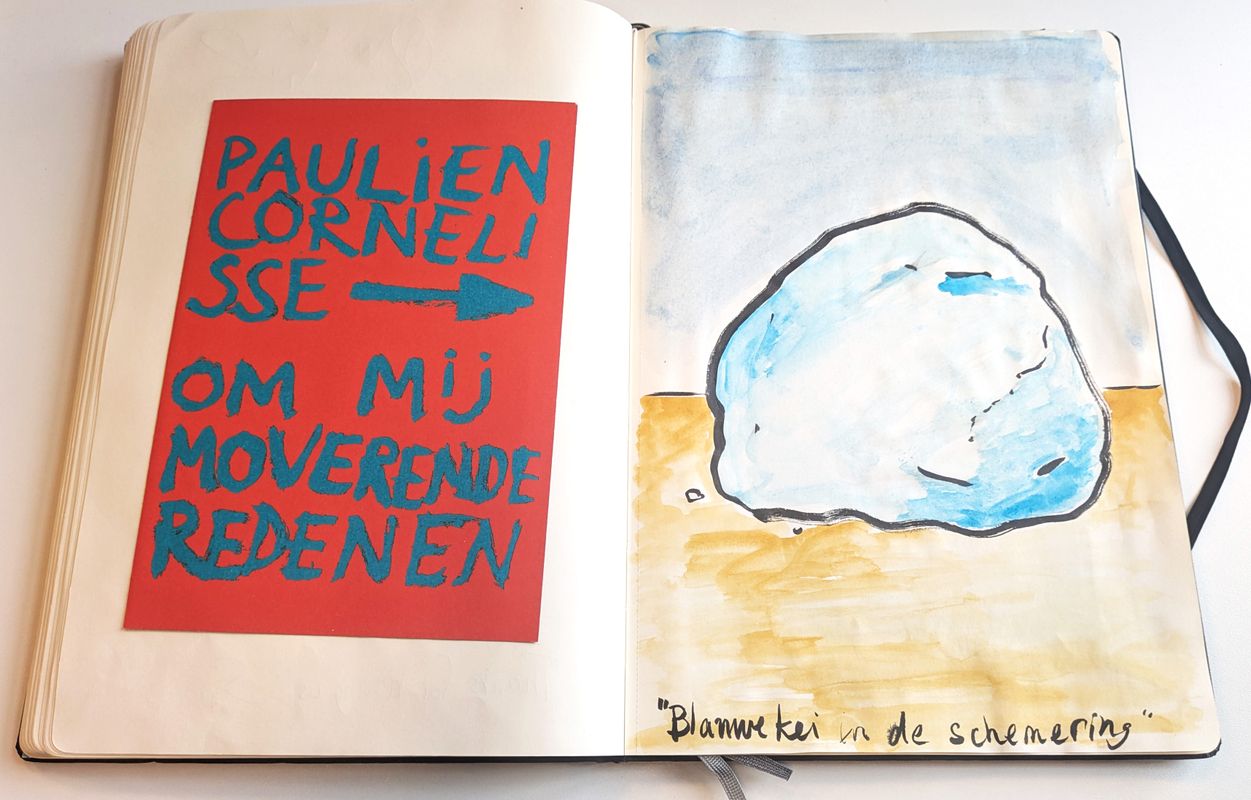 PAULiEN
CORNELI
SSE
OM MIJ
MOVERENDE
REDENEN
"Blauwe kei in de schemering"